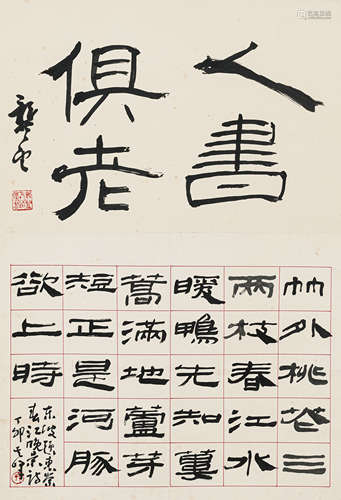 人書
俱老
龔望
竹外桃花三
兩枝春江水
暖鴨先知蔞
蒿滿地蘆芽
短正是河豚
欲上時
东坡题惠崇
春江晚景诗
丁卯